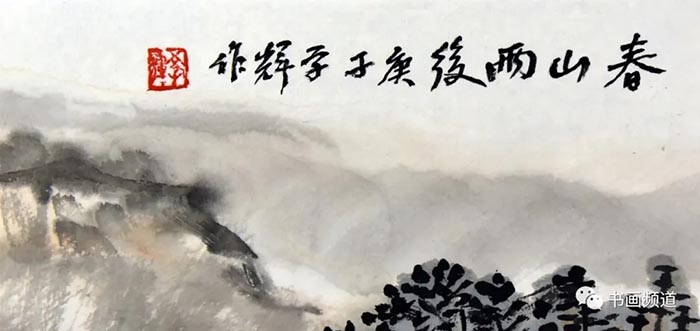 春山雨後庚子学辉作
书画频道